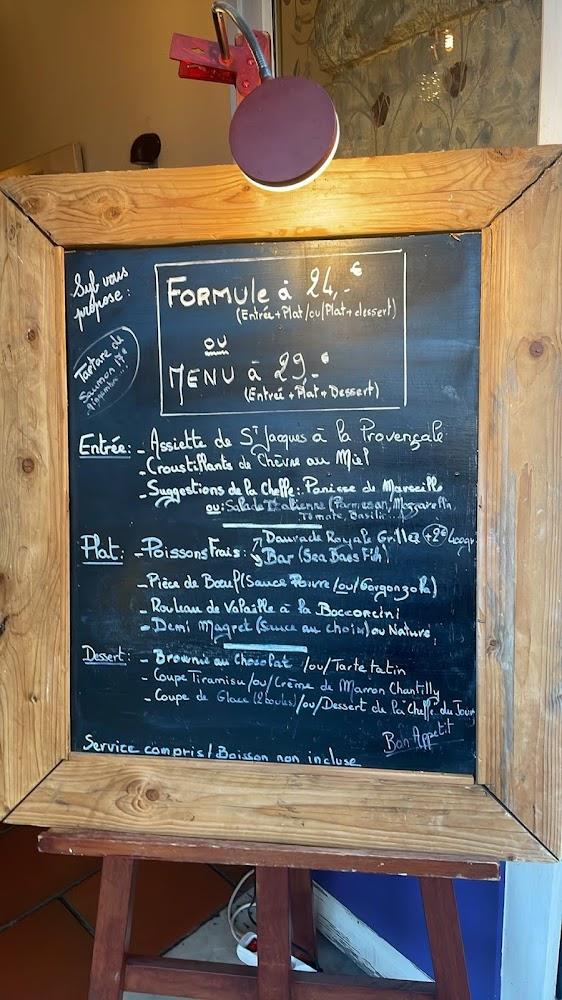 Syl vous
propose:
FORMULE à 24,-€
(Entrée + Plat /ou/ Plat + dessert)
ou
MENU à 29,-€
(Entrée + Plat + Dessert)
Tartare de
Saumon 17€
Entrée: - Assiette de St Jaques à la Provençale
- Croustillants de Chèvre au Miel
- Suggestions de la Cheffe: Panisse de Marseille
ou: Salade Italienne (Parmesan, Mozzarella,
Tomate, Basilic...)
Plat: - Poissons Frais: Daurade Royale Grillée +2€ 400gr
Bar (Sea Bass Fish)
- Pièce de Bœuf (Sauce Poivre /ou/ Gorgonzola)
- Rouleau de Volaille à la Bocconcini
- Demi Magret (Sauce au choix) ou Nature
Dessert: - Brownie au Chocolat /ou/ Tarte tatin
- Coupe Tiramisu /ou/ Crème de Marron Chantilly
- Coupe de Glace (2 boules) /ou/ Dessert de la Cheffe du Jour
Bon Appetit
Service compris / Boisson non incluse